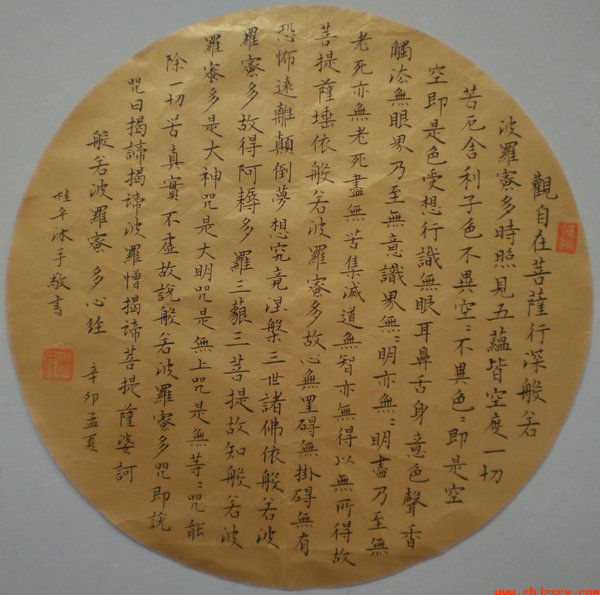 觀自在菩薩行深般若
波羅蜜多時照見五蘊皆空度一切
苦厄舍利子色不異空〻不異色〻即是空
空即是色受想行識無眼耳鼻舌身意色聲香
觸法無眼界乃至無意識界無〻明亦無〻明盡乃至無
老死亦無老死盡無苦集滅道無智亦無得以無所得故
菩提薩埵依般若波羅蜜多故心無罣礙無掛礙無有
恐怖遠離顛倒夢想究竟涅槃三世諸佛依般若波
羅蜜多故得阿耨多羅三藐三菩提故知般若波
羅蜜多是大神咒是大明咒是無上咒是無等〻咒能
除一切苦真實不虛故說般若波羅蜜多咒即說
咒曰揭諦揭諦波羅憎揭諦菩提薩婆訶
般若波羅蜜多心經 辛卯孟夏
沐手敬書
www.sbjzscx.com